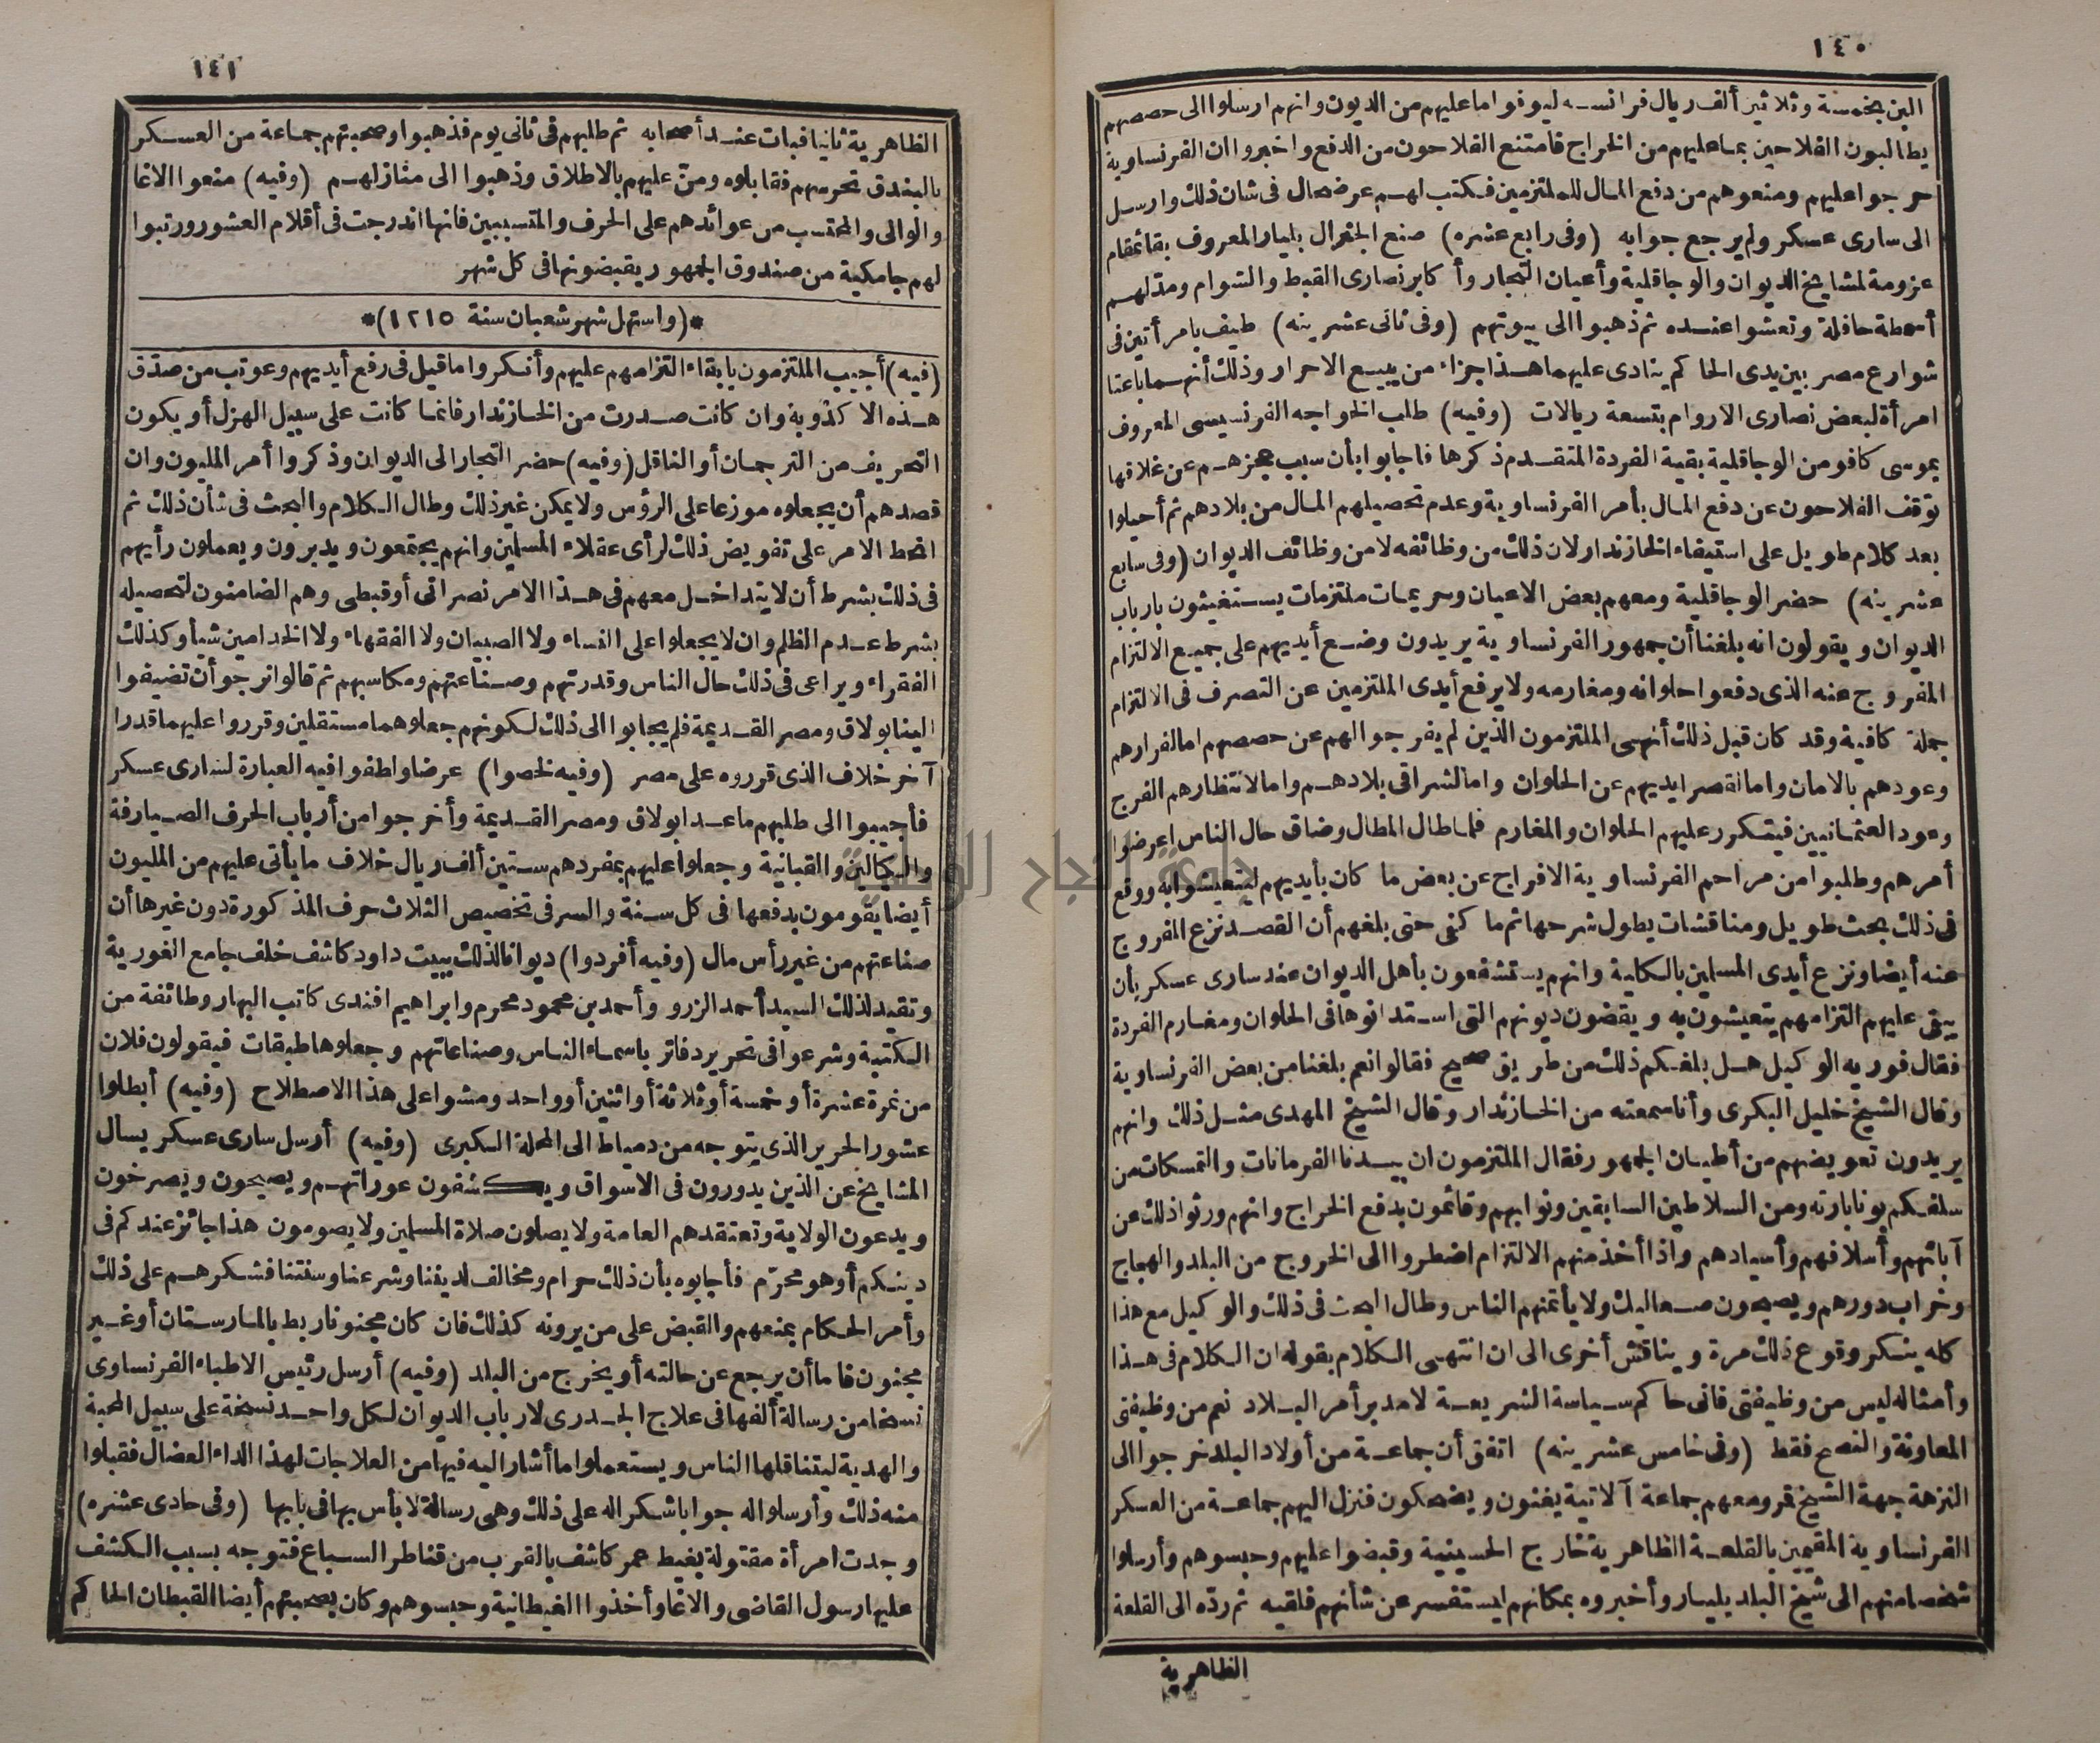 ١٤٠
البن بخمسة وثلاثين ألف ريال فرانسه ليوفوا ما عليهم من الديون وانهم ارسلوا الى حصصهم
يطالبون الفلاحين بما عليهم من الخراج فامتنع الفلاحون من الدفع واخبروا ان الفرنساوية
حرجوا عليهم ومنعوهم من دفع المال للملتزمين فكتب لهم عرضحال فى شان ذلك وارسل
الى سارى عسكر ولم يرجع جوابه (وفى رابع عشره) صنع الجنرال بليار المعروف بقائمقام
عزومة لمشايخ الديوان والوجاقلية وأعيان التجار وأكابر نصارى القبط والشوام ومدّ لهم
أسمطة حافلة وتعشوا عنده ثم ذهبوا الى بيوتهم (وفى ثانى عشرينه) طيف بامرأتين فى
شوارع مصر بين يدى الحاكم ينادى عليهما هذا جزاء من يبيع الاحرار وذلك أنهما باعتا
امرأة لبعض نصارى الاروام بتسعة ريالات (وفيه) طلب الخواجه الفرنسيسى المعروف
بموسى كافو من الوجاقلية بقية الفردة المتقدم ذكرها فاجابوا بأن سبب عجزهم عن غلاقها
توقف الفلاحون عن دفع المال بأمر الفرنساوية وعدم تحصيلهم المال من بلادهم ثم أحيلوا
بعد كلام طويل على استيفاء الخازندار لان ذلك من وظائفه لا من وظائف الديوان (وفى سابع
عشرينه) حضر الوجاقلية ومعهم بعض الاعيان وحريمات ملتزمات يستغيثون بارباب
الديوان ويقولون انه بلغنا أن جمهور الفرنساوية يريدون وضع أيديهم على جميع الالتزام
المفروج عنه الذى دفعوا حلوانه ومغارمه ولا يرفع أيدى الملتزمين عن التصرف فى الالتزام
جملة كافية وقد كان قبل ذلك أنهى الملتزمون الذين لم يفرجوا لهم عن حصصهم اما لفرارهم
وعودهم بالامان واما لقصر ايديهم عن الحلوان واما لشراقى بلادهم واما لانتظارهم الفرج
وعود العثمانيين فيتكرر عليهم الحلوان والمغارم فلما طال المطال وضاق حال الناس اعرضوا
أمرهم وطلبوا من مراحم الفرنساوية الافراج عن بعض ما كان بأيديهم ليتعيشوا به ووقع
فى ذلك بحث طويل ومناقشات يطول شرحها ثم ما كفى حتى بلغهم أن القصد نزع المفروج
عنه أيضا ونزع أيدى المسلمين بالكلية وانهم يستشفعون بأهل الديوان عند سارى عسكر بأن
يبقى عليهم التزامهم يتعيشون به ويقضون ديونهم التى استدانوها فى الحلوان ومغارم الفردة
فقال فوريه الوكيل هل بلغكم ذلك من طريق صحيح فقالوا نعم بلغنا من بعض الفرنساوية
وقال الشيخ خليل البكرى وأنا سمعته من الخازندار وقال الشيخ المهدى مثل ذلك وانهم
يريدون تعويضهم من أطيان الجمهور فقال الملتزمون ان بيدنا الفرمانات والتمسكات من
سلفكم بونابارته ومن السلاطين السابقين ونوابهم وقائمون بدفع الخراج وانهم ورثوا ذلك عن
آبائهم وأسلافهم وأسيادهم واذا أخذ منهم الالتزام اضطروا الى الخروج من البلد والهجاج
وخراب دورهم ويصبحون صعاليك ولا يأتمنهم الناس وطال البحث فى ذلك والوكيل مع هذا
كله ينكر وقوع ذلك مرة ويناقش أخرى الى ان انتهى الكلام بقوله ان الكلام فى هذا
وأمثاله ليس من وظيفتى فانى حاكم سياسة الشريعة لا مدبر أمر البلاد نعم من وظيفتى
المعاونة والنصح فقط (وفى خامس عشرينه) اتفق أن جماعة من أولاد البلد خرجوا الى
النزهة جهة الشيخ قمر ومعهم جماعة آلاتية يغنون ويضحكون فنزل اليهم جماعة من العسكر
الفرنساوية المقيمين بالقلعة الظاهرية خارج الحسينية وقبضوا عليهم وحبسوهم وأرسلوا
شخصا منهم الى شيخ البلد بليار وأخبروه بمكانهم ليستفسر عن شأنهم فلقيه ثم ردّه الى القلعة
الظاهرية
١٤١
الظاهرية ثانيا فبات عند أصحابه ثم طلبهم فى ثانى يوم فذهبوا وصحبتهم جماعة من العسكر
بالبندق تحرسهم فقابلوه ومنّ عليهم بالاطلاق وذهبوا الى منازلهم (وفيه) منعوا الاغا
والوالى والمحتسب من عوائدهم على الحرف والمتسببين فانها اندرجت فى أقلام العشور ورتبوا
لهم جامكية من صندوق الجمهور يقبضونها فى كل شهر
*(واستهل شهر شعبان سنة ١٢١٥)*
(فيه) أجيب الملتزمون بابقاء التزامهم عليهم وأنكروا ما قيل فى رفع أيديهم وعوتب من صدّق
هذه الاكذوبة وان كانت صدرت من الخازندار فانما كانت على سبيل الهزل أو يكون
التحريف من الترجمان أو الناقل (وفيه) حضر التجار الى الديوان وذكروا أمر المليون وان
قصدهم أن يجعلوه موزعا على الرؤس ولا يمكن غير ذلك وطال الكلام والبحث فى شأن ذلك ثم
انحط الامر على تفويض ذلك لرأى عقلاء المسلمين وانهم يجتمعون ويدبرون ويعملون رأيهم
فى ذلك بشرط أن لا يتداخل معهم فى هذا الامر نصرانى أو قبطى وهم الضامنون لتحصيله
بشرط عدم الظلم وان لا يجعلوا على النساء ولا الصبيان ولا الفقهاء ولا الخدامين شيأ وكذلك
الفقراء ويراعى فى ذلك حال الناس وقدرتهم وصناعتهم ومكاسبهم ثم قالوا نرجو أن تضيفوا
الينا بولاق ومصر القديمة فلم يجابوا الى ذلك لكونهم جعلوهما مستقلين وقرروا عليهما قدرا
آخر خلاف الذى قرروه على مصر (وفيه لخصوا) عرضا واطفوا فيه العبارة لسارى عسكر
فأجيبوا الى طلبهم ما عدا بولاق ومصر القديمة وأخرجوا من أرباب الحرف الصيارفة
والكيالين والقبانية وجعلوا عليهم بمفردهم ستين ألف ريال خلاف ما يأتى عليهم من المليون
أيضا يقومون بدفعها فى كل سنة والسر فى تخصيص الثلاث حرف المذكورة دون غيرها أن
صناعتهم من غير رأس مال (وفيه أفردوا) ديوانا لذلك ببيت داود كاشف خلف جامع الغورية
وتقيد لذلك السيد أحمد الزرو وأحمد بن محمود محرم وابراهيم افندى كاتب البهار وطائفة من
الكتبة وشرعوا فى تحرير دفاتر باسماء الناس وصناعاتهم وجعلوها طبقات فيقولون فلان
من نمرة عشرة أو خمسة أو ثلاثة أو اثنين أو واحد ومشوا على هذا الاصطلاح (وفيه) أبطلوا
عشور الحرير الذى يتوجه من دمياط الى المحلة الكبرى (وفيه) أرسل سارى عسكر يسال
المشايخ عن الذين يدورون فى الاسواق ويكشفون عوراتهم ويصيحون ويصرخون
ويدعون الولاية وتعتقدهم العامة ولا يصلون صلاة المسلمين ولا يصومون هذا جائز عندكم فى
دينكم أو هو محرّم فأجابوه بأن ذلك حرام ومخالف لديننا وشرعنا وسنتنا فشكرهم على ذلك
وأمر الحكام بمنعهم والقبض على من يرونه كذلك فان كان مجنونا ربط بالمارستان أو غير
مجنون فاما أن يرجع عن حالته أو يخرج من البلد (وفيه) أرسل رئيس الاطباء الفرنساوى
نسخا من رسالة ألفها فى علاج الجدرى لارباب الديوان لكل واحد نسخة على سبيل المحبة
والهدية ليتناقلها الناس ويستعملوا ما أشار اليه فيها من العلاجات لهذا الداء العضال فقبلوا
منه ذلك وأرسلوا له جوابا شكرا له على ذلك وهى رسالة لا بأس بها فى بابها (وفى حادى عشره)
وجدت امرأة مقتولة بغيط عمر كاشف بالقرب من قناطر السباع فتوجه بسبب الكشف
عليها رسول القاضى والاغا وأخذوا الغيطانية وحبسوهم وكان بصحبتهم أيضا القبطان الحاكم
جامعة النجاح الوطنية